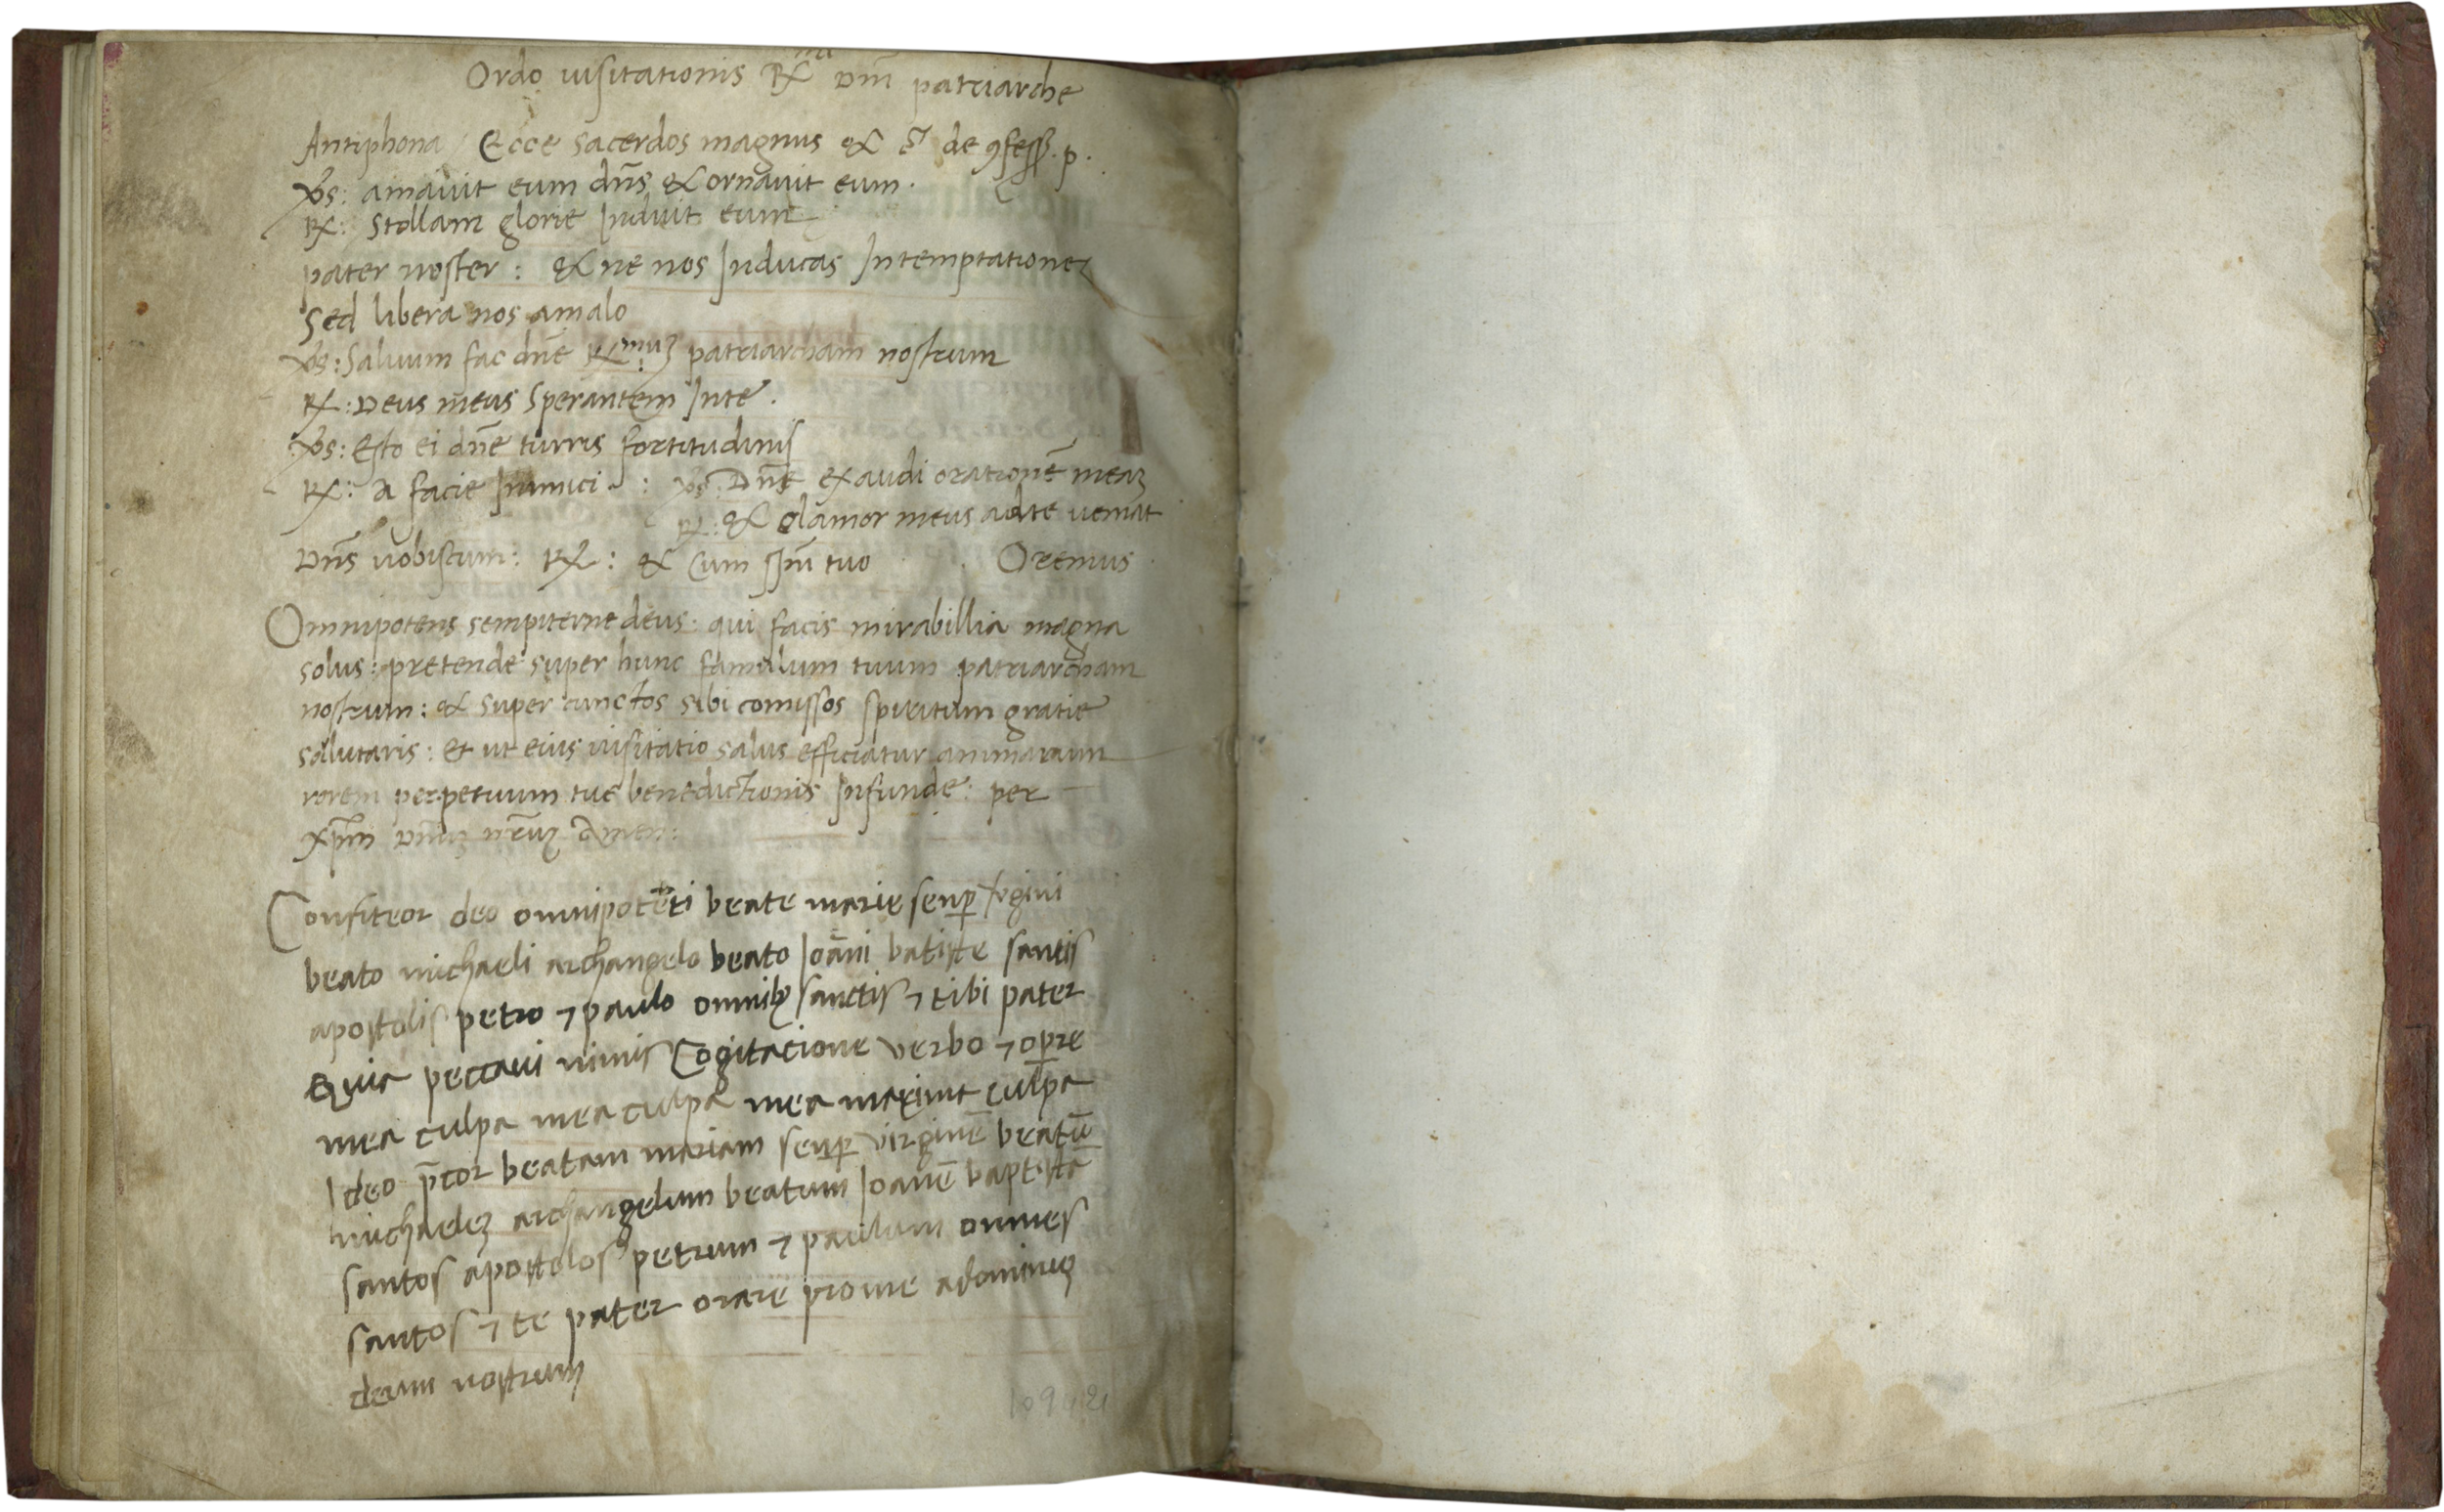 Ordo uisitationis R^mi Dnī patriarche
Antiphona / Ecce sacerdos magnus & c̄ de ꝯfess. p.
℣s: amauit eum dn̄s & ornauit eum.
℞: Stollam glorie Induit eum
pater noster: & ne nos Inducas Intemptationeꝫ
Sed libera nos amalo
℣s: Saluum fac dn̄e R^muꝫ patriarcham nostrum
℞: Deus meus Sperantem Inte.
℣s: Esto ei dn̄e turris fortitudinis
℞: A facie Inimici : ℣s: Dn̄e exaudi orationē meaꝫ
℞: & clamor meus adte ueniat
Dn̄s uobiscum: ℞: & Cum sp̄u tuo Oremus
Omnipotens sempiterne deus: qui facis mirabillia magna
solus: pretende super hunc famulum tuum patriarcham
nostrum: & super cunctos sibi comissos spiritum gratie
salutaris: et ut eius uisitatio salus efficiatur animarum
rorem perpetuum tue benedictionis Infunde: per
xp̄m Dn̄uꝫ nr̄uꝫ Amen:
Confiteor deo omnipotēti beate marie senꝑ v̄gini
beato michaeli archangelo beato Ioāni batiste santis
apostolis petro ⁊ paulo omnibꝫ sanctis ⁊ tibi pater
Quia peccaui nimis Cogitacione verbo ⁊ oꝑre
mea culpa mea culpa mea maxima culpa
Ideo p̄cor beatam mariam senꝑ virginē beatū
michaeleꝫ archangelum beatum Ioanē baptistā
santos apostolos petrum ⁊ paulum omnes
santos ⁊ te pater orare prome adominuꝫ
deum nostrum
109421